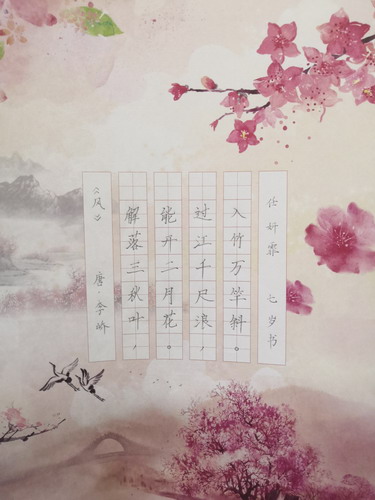 《风》 唐·李峤
解落三秋叶，
能开二月花。
过江千尺浪，
入竹万竿斜。
任妍霏 七岁书